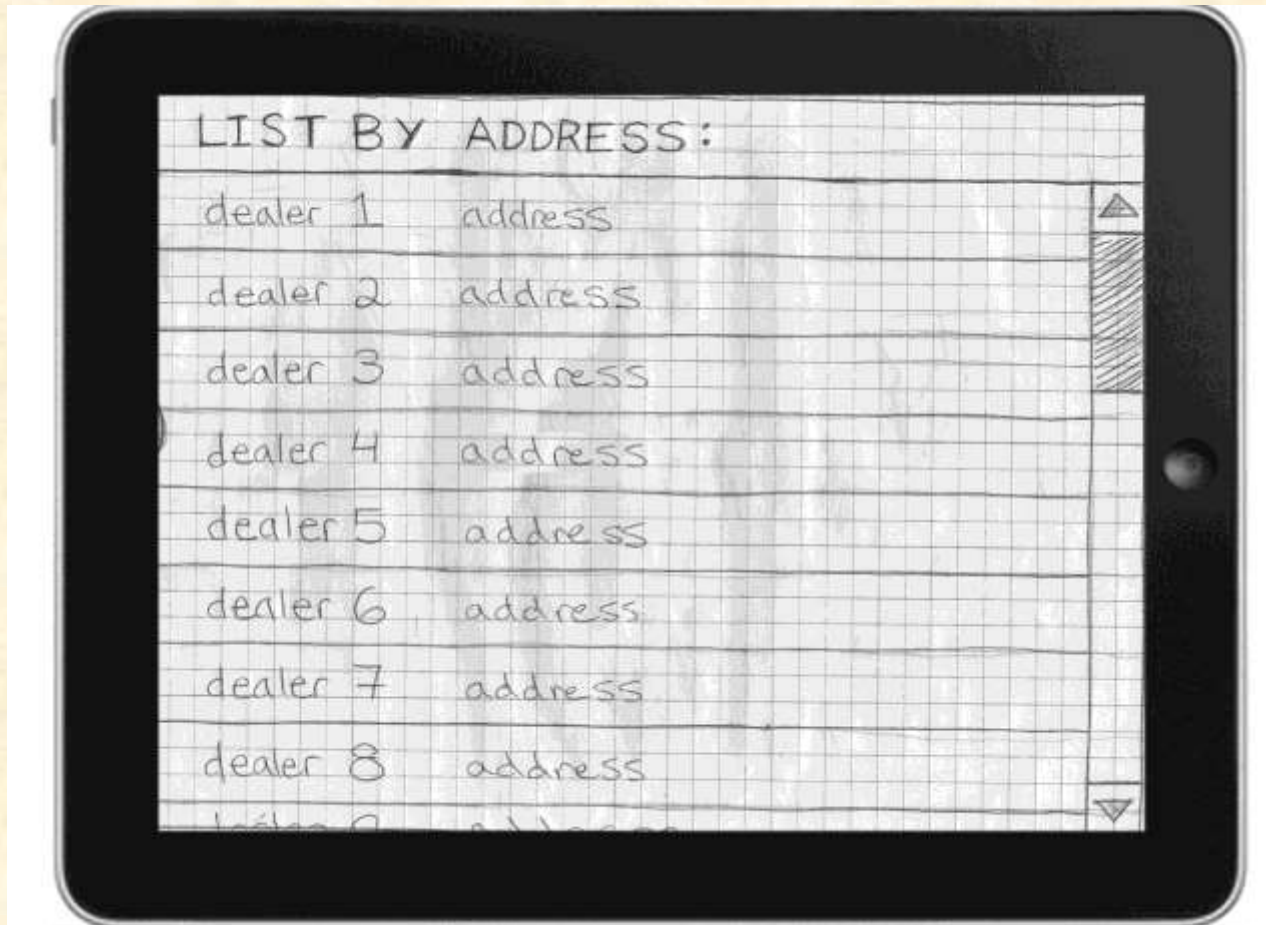 LIST BY ADDRESS:
dealer 1 address
dealer 2 address
dealer 3 address
dealer 4 address
dealer 5 address
dealer 6 address
dealer 7 address
dealer 8 address